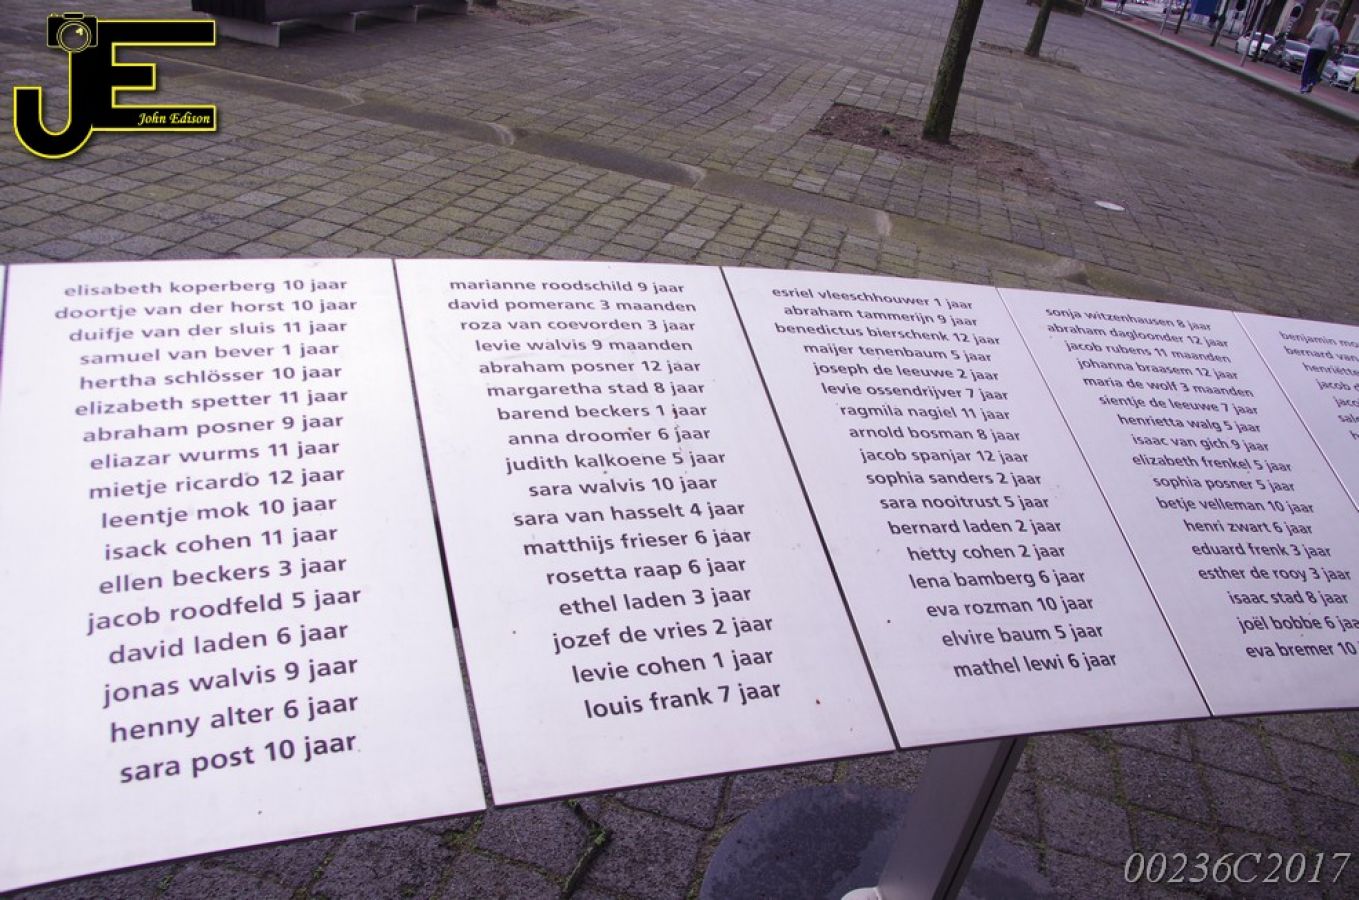 JE
John Edison
elisabeth koperberg 10 jaar
doortje van der horst 10 jaar
duifje van der sluis 11 jaar
samuel van bever 1 jaar
hertha schlösser 10 jaar
elizabeth spetter 11 jaar
abraham posner 9 jaar
eliazar wurms 11 jaar
mietje ricardo 12 jaar
leentje mok 10 jaar
isack cohen 11 jaar
ellen beckers 3 jaar
jacob roodfeld 5 jaar
david laden 6 jaar
jonas walvis 9 jaar
henny alter 6 jaar
sara post 10 jaar
marianne roodschild 9 jaar
david pomeranc 3 maanden
roza van coevorden 3 jaar
levie walvis 9 maanden
abraham posner 12 jaar
margaretha stad 8 jaar
barend beckers 1 jaar
anna droomer 6 jaar
judith kalkoene 5 jaar
sara walvis 10 jaar
sara van hasselt 4 jaar
matthijs frieser 6 jaar
rosetta raap 6 jaar
ethel laden 3 jaar
jozef de vries 2 jaar
levie cohen 1 jaar
louis frank 7 jaar
esriel vleeschhouwer 1 jaar
abraham tammerijn 9 jaar
benedictus bierschenk 12 jaar
maijer tenenbaum 5 jaar
joseph de leeuwe 2 jaar
levie ossendrijver 7 jaar
ragmila nagiel 11 jaar
arnold bosman 8 jaar
jacob spanjar 12 jaar
sophia sanders 2 jaar
sara nooitrust 5 jaar
bernard laden 2 jaar
hetty cohen 2 jaar
lena bamberg 6 jaar
eva rozman 10 jaar
elvire baum 5 jaar
mathel lewi 6 jaar
sonja witzenhausen 8 jaar
abraham dagloonder 12 jaar
jacob rubens 11 maanden
johanna braasem 12 jaar
maria de wolf 3 maanden
sientje de leeuwe 7 jaar
henrietta walg 5 jaar
isaac van gich 9 jaar
elizabeth frenkel 5 jaar
sophia posner 5 jaar
betje velleman 10 jaar
henri zwart 6 jaar
eduard frenk 3 jaar
esther de rooy 3 jaar
isaac stad 8 jaar
joël bobbe 6 jaa
eva bremer 10
benjamin mo
bernard van
henriëtte
jacob d
jaco
sal
00236C2017